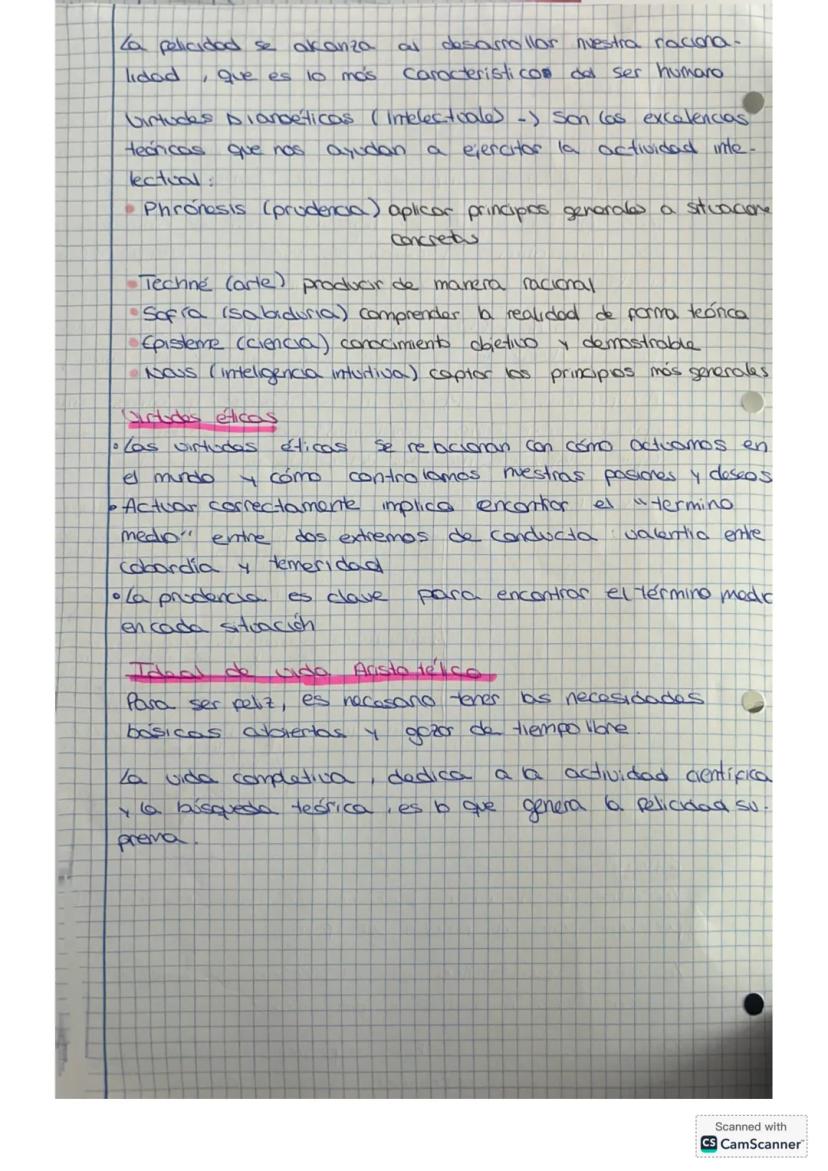 La felicidad se alcanza al desarrollar nuestra raciona-
lidad, que es lo más caracteristicos del ser humano
Virtudes Dianoéticas (intelectuales) -> Son las excelencias
teóricas que nos ayudan a ejercitar la actividad inte-
lectual:
• Phrónesis (prudencia) aplicar principios generales a situacione
concretas
• Techné (arte) producir de manera racional
• Sofía (sabiduria) comprender la realidad de forma teórica
• Episteme (ciencia) conocimiento objetivo y demostrable
• Nous (inteligencia intuitiva) captar los principios más generales
Virtudes éticas
• Las virtudes éticas se relacionan con cómo actuamos en
el mundo y cómo controlamos nuestras pasiones y deseos
• Actuar correctamente implica encontrar el "termino
medio" entre dos extremos de conducta: valentia ente
cobardía y temeridad
• La prudencia es clave para encontrar el término medio
en cada situación
Ideal de vida Aristotélico
Para ser feliz, es necesario tener las necesidades
básicas abiertas y gozar de tiempo libre.
La vida completiva, dedica a la actividad científica
y la búsqueda teórica, es lo que genera la felicidad su-
prema.
Scanned with
CS CamScanner